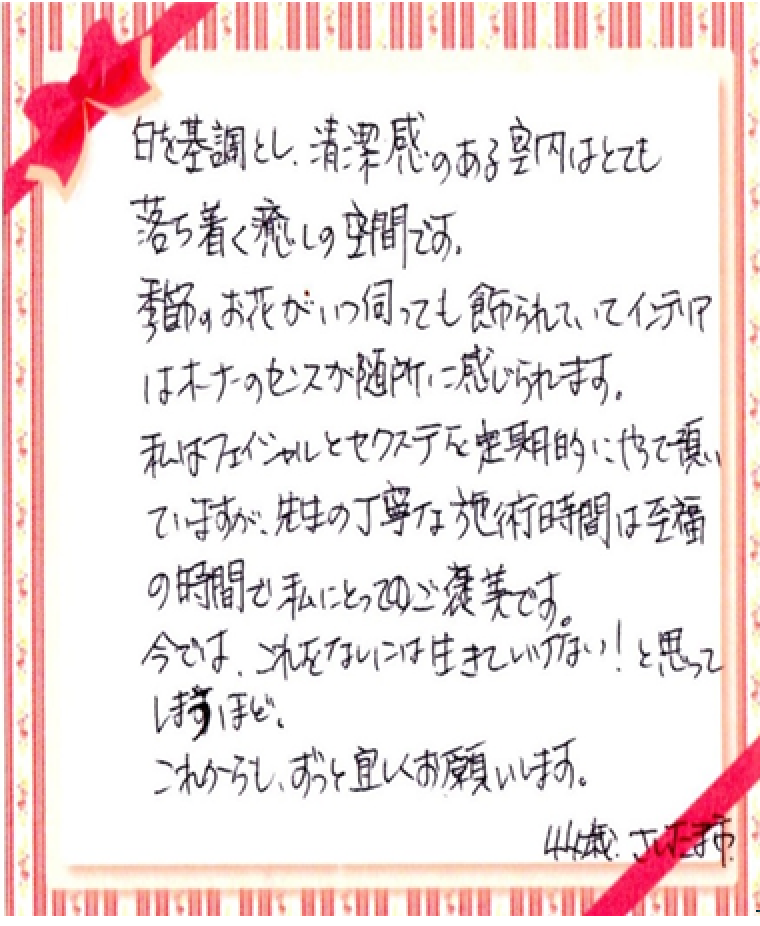 白を基調とし、清潔感のある室内はとても
落ち着く癒しの空間です。
季節のお花がいつ伺っても飾られていてインテリア
はオーナーのセンスが随所に感じられます。
私はフェイシャルとセクステを定期的にやって頂い
ていますが、先生の丁寧な施術時間は至福
の時間で私にとってのご褒美です。
今では、これをなしには生きていけない！と思って
しますほど。
これからも、ずっと宜しくお願いします。
44歳 さいたま市